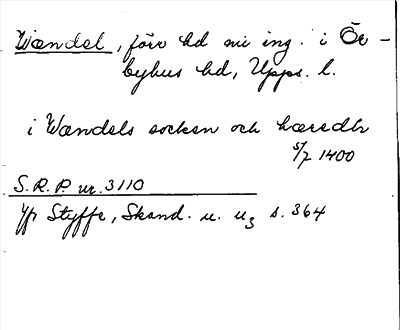 Wændel, förr hd nu ing. i Ör-
byhus hd, Upps. l.
i Wændels socken och hæredh
5/7 1400
S.R.P. nr. 3110
Jfr Styffe, Skand. u. u3 s. 364